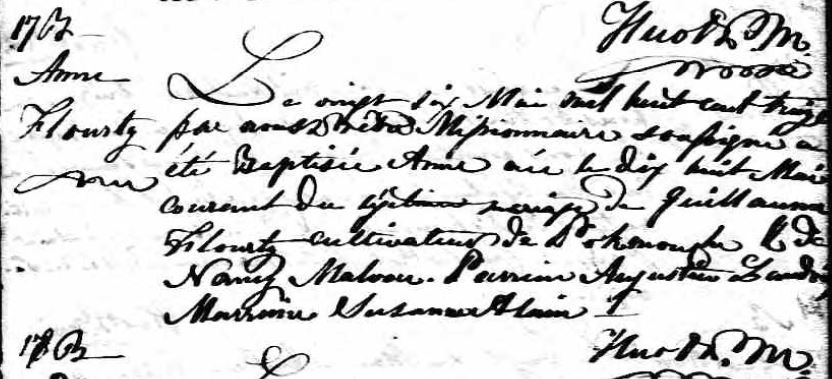 1762
Huot Ptr. M.
Anne
Le vingt six Mai mil huit cent treize
Flourty par nous Prêtre Missionnaire soussigné a
été Baptisée Anne née le dix huit Mai
courant du légitime mariage de Guillaume
Flourty cultivateur de Pokemouche & de
Nancy Malvou. Parrain Augustin Landry
Marraine Susanne Alain
1763
Huot Ptr. M.